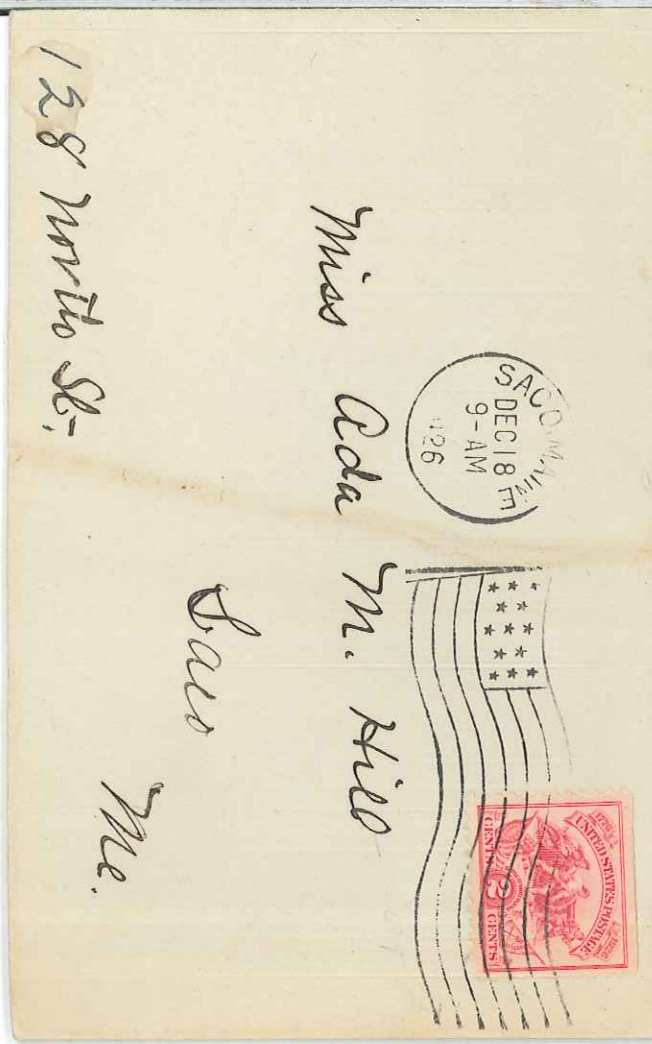 SACO, MAINE
DEC 18
9-AM
1926
UNITED STATES POSTAGE
CENTS 2 CENTS
Miss Ada M. Hill
Saco
Me.
128 North St.,